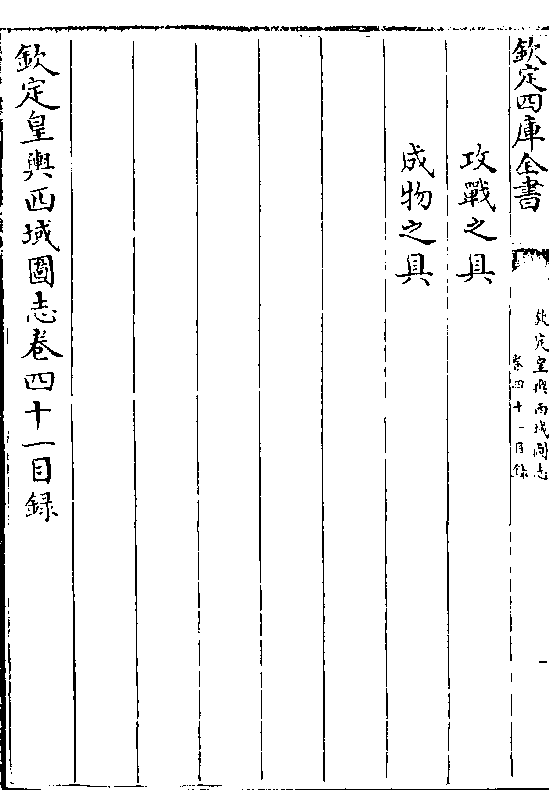 欽定四庫全書
欽定皇輿西域圖志
卷四十一目錄
攻戰之具
成物之具
欽定皇輿西域圖志卷四十一目録